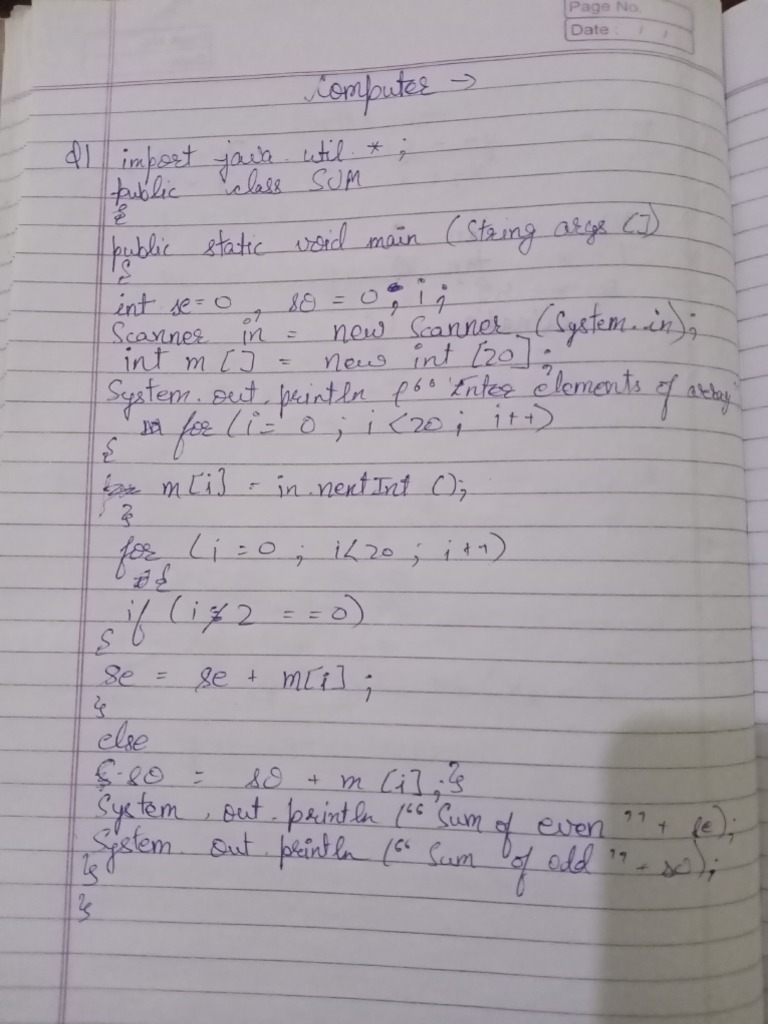 Page No.
Date : / /
Computer →
Q1 import java. util. * ;
public class SUM
{
public static void main (String args [])
{
int se = 0 , so = 0 , i ;
Scanner in = new Scanner (System.in);
int m [] = new int [20] ;
System. out. println (“ Enter elements of array
for (i = 0 ; i < 20 ; i++)
{
m[i] = in.nextInt ();
}
for (i = 0 ; i<20 ; i++)
{
if (i % 2 = = 0)
{
se = se + m[i] ;
}
else
{ so = so + m [i] ; }
System . out. println (“ Sum of even ” + se);
System. out. println (“ Sum of odd ” + so);
}
}